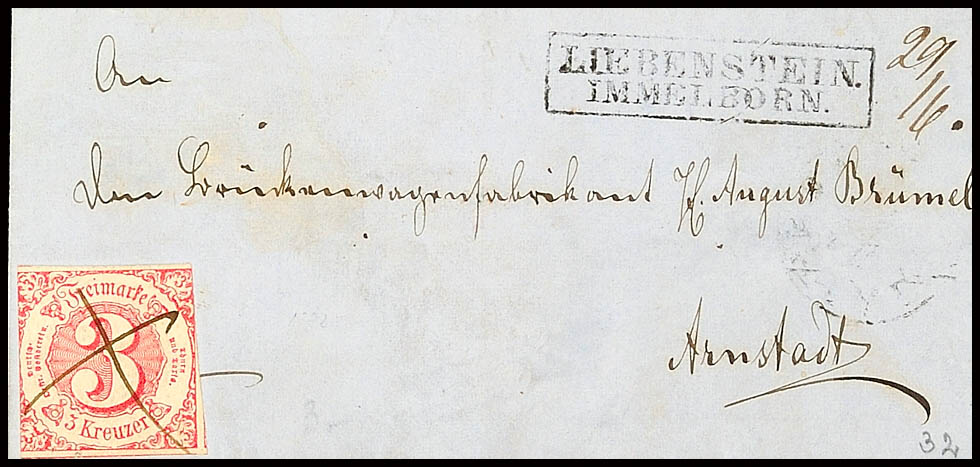 An
LIEBENSTEIN.
IMMELBORN.
29/6.
Den Brückenwagenfabrikant H. August Brümel
Arnstadt
Freimarke
3
3 Kreuzer
32